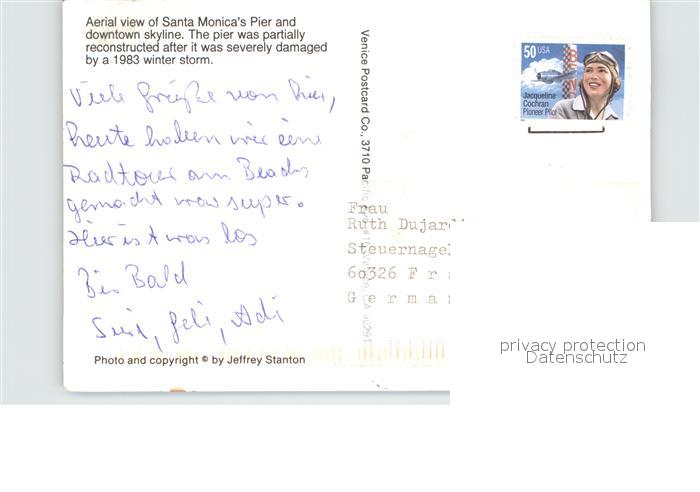 Aerial view of Santa Monica's Pier and
downtown skyline. The pier was partially
reconstructed after it was severely damaged
by a 1983 winter storm.
Viele Grüße von hier,
heute haben wir eine
Radtour am Beach
gemacht war super.
Hier ist was los
Bis Bald
Adi
Photo and copyright © by Jeffrey Stanton
Venice Postcard Co., 3710 Pacific
CA 90291
50 USA
Jacqueline
Cochran
Pioneer Pilot
Frau
Ruth Dujardi
Steuernagel
60326 F r a
G e r m a n
privacy protection
Datenschutz